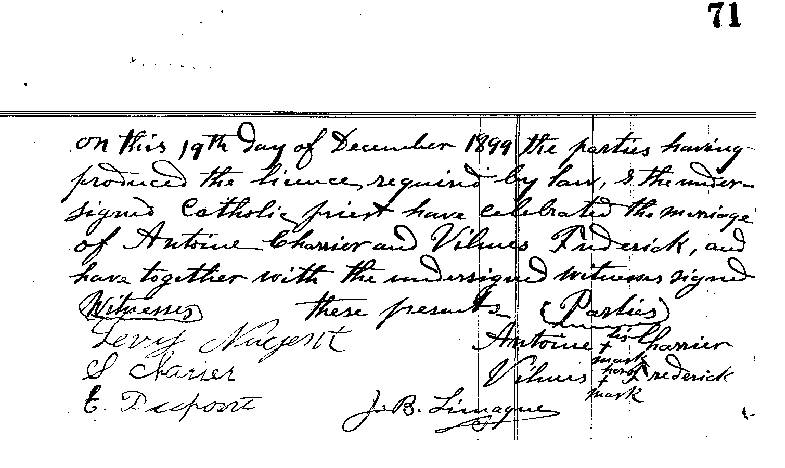 71
on this 19th day of December 1899 the parties having
produced the licence required by law, I the under-
signed Catholic priest have celebrated the mariage
of Antoine Charrier and Vilmis Frederick, and
have together with the undersigned witness signed
Witnesses these presents (Parties)
Levy Nugent Antoine his + mark Charrier
S Charrier Vilmis her + mark Frederick
E. Dupont J. B. Limagne